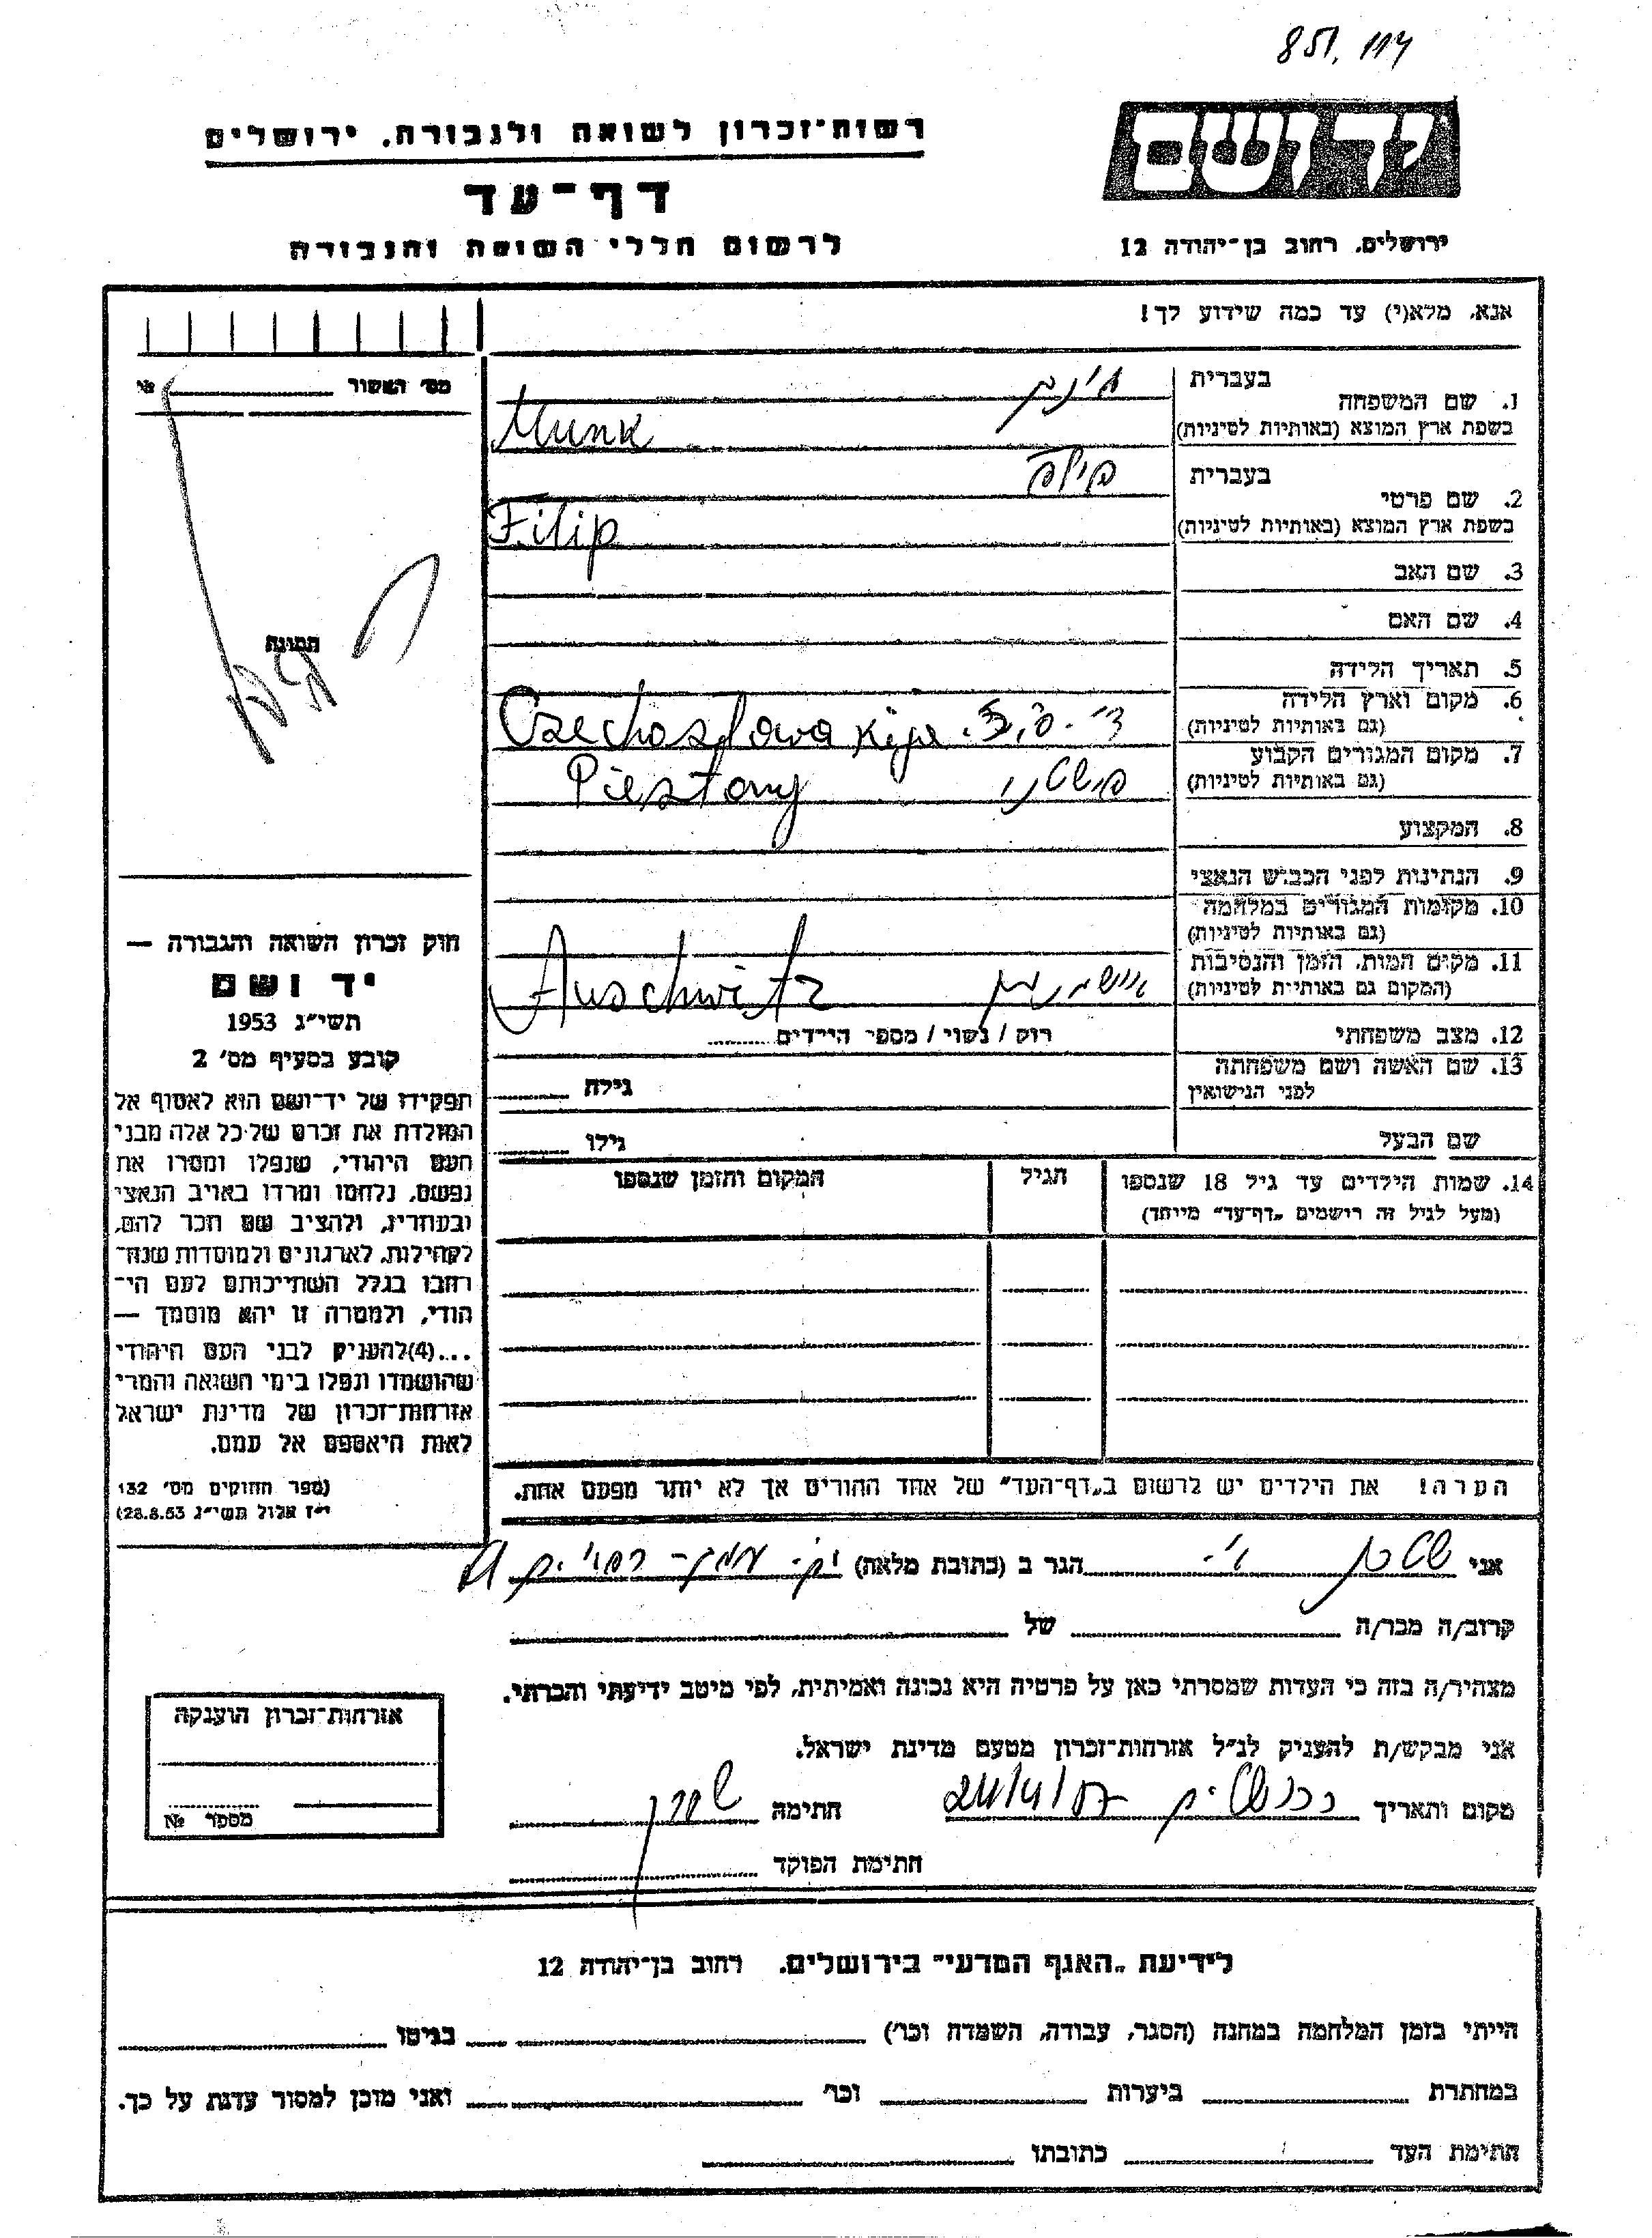 851, 114
יד ושם
רשות־זכרון לשואה ולגבורה. ירושלים
דף־עד
לרשום חללי השואה והגבורה
ירושלים. רחוב בן־יהודה 12
אנא, מלא(י) עד כמה שידוע לך!
מס׳ האשור
בעברית
1. שם המשפחה
בשפת ארץ המוצא (באותיות לטיניות) Munk
בעברית פיליפ
2. שם פרטי
בשפת ארץ המוצא (באותיות לטיניות) Filip
3. שם האב
4. שם האם
תמונה
5. תאריך הלידה
6. מקום וארץ הלידה
(גם באותיות לטיניות) Czechoslowakije
7. מקום המגורים הקבוע
(גם באותיות לטיניות) פישטני Piestany
8. המקצוע
9. הנתינות לפני הכבוש הנאצי
10. מקומות המגורים במלחמה
(גם באותיות לטיניות)
11. מקום המות, הזמן והנסיבות
(המקום גם באותיות לטיניות) אושוויץ Auschwitz
12. מצב משפחתי רווק / נשוי / מספר הילדים
13. שם האשה ושם משפחתה
לפני הנישואין גילה
שם הבעל גילו
14. שמות הילדים עד גיל 18 שנספו הגיל המקום והזמן שנספו
(מעל לגיל זה רושמים „דף־עד״ מיוחד)
הערה! את הילדים יש לרשום ב„דף־העד״ של אחד ההורים אך לא יותר מפעם אחת.
חוק זכרון השואה והגבורה —
יד ושם
תשי״ג 1953
קובע בסעיף מס׳ 2
תפקידו של יד־ושם הוא לאסוף אל
המולדת את זכרם של כל אלה מבני
העם היהודי, שנפלו ומסרו את
נפשם, נלחמו ומרדו באויב הנאצי
ובעוזריו, ולהציב שם וזכר להם,
לקהילות, לארגונים ולמוסדות שנח־
רבו בגלל השתייכותם לעם הי־
הודי, ולמטרה זו יהא מוסמך —
...(4) להעניק לבני העם היהודי
שהושמדו ונפלו בימי השואה והמרי
אזרחות־זכרון של מדינת ישראל
לאות היאספם אל עמם.
(ספר החוקים מס׳ 132
י״ז אלול תשי״ג 28.8.53)
אני הגר ב (כתובת מלאה)
קרוב/ה מכר/ה של
מצהיר/ה בזה כי העדות שמסרתי כאן על פרטיה היא נכונה ואמיתית, לפי מיטב ידיעתי והכרתי.
אני מבקש/ת להעניק לנ״ל אזרחות־זכרון מטעם מדינת ישראל.
מקום ותאריך חתימה
חתימת הפוקד
אזרחות־זכרון הוענקה
מספר №
לידיעת „האגף המדעי״ בירושלים. רחוב בן־יהודה 12
הייתי בזמן המלחמה במחנה (הסגר, עבודה, השמדה וכו׳) בגיטו
במחתרת ביערות וכו׳ ואני מוכן למסור עדות על כך.
חתימת העד כתובתו